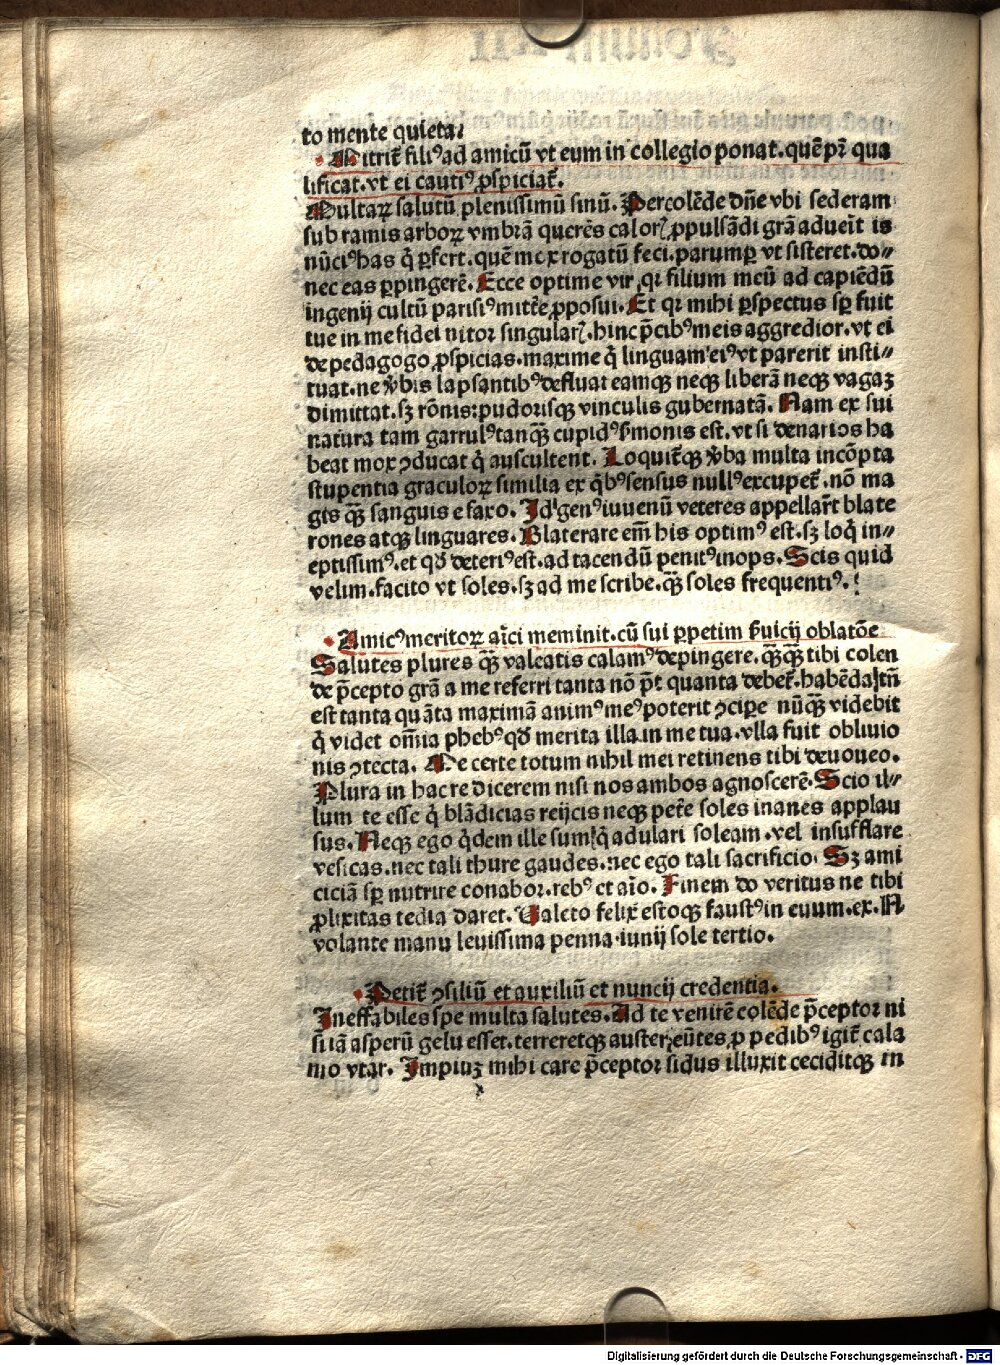 to mente quieta.
Mittit̃ fili⁹ ad amicũ vt eum in collegio ponat. quẽ pr̃ qua
lificat. vt ei cauti⁹ ꝓspiciat̃.
Multaꝝ salutũ plenissimũ sinũ. Percolẽde dñe vbi sederam
sub ramis arboꝝ vmbrã querẽs caloꝝ ꝓpulsãdi grã adueĩt is
nũci⁹ has q̃ ꝑfert. quẽ mox rogatũ feci. parumꝑ vt sisteret. do⸗
nec eas ꝑpingerẽ. Ecce optime vir qr filium meũ ad capiẽdũ
ingenij cultũ parisi⁹ mittẽ ꝓposui. Et qr mihi ꝑspectus sꝑ fuit
tue in me fidei nitor singular̃. hinc p̃cib⁹ meis aggredior. vt ei
de pedagogo ꝓspicias. maxime q̃ linguam ei⁹ vt parerit insti⸗
tuat. ne v̉bis lapsantib⁹ defluat eamqꝫ neqꝫ liberã neqꝫ vagaꝫ
dimittat. sꝫ rõnis: pudorisqꝫ vinculis gubernatã. Nam ex sui
natura tam garrul⁹ tanqꝫ̃ cupid⁹ s̉monis est. vt si denarios ha
beat mox ꝯducat q̃ auscultent. Loquit̃qꝫ v̉ba multa incõpta
stupentia graculoꝝ similia ex q̃b⁹ sensus null⁹ excupet̃. nõ ma
gis qꝫ̃ sanguis e saxo. Id gen⁹ iuuenũ veteres appellar̃t blate
rones atqꝫ linguares. Blaterare em̃ his optim⁹ est. sꝫ loq̃ in⸗
eptissim⁹. et qđ deteri⁹ est. ad tacendũ penit⁹ inops. Scis quid
velim. facito vt soles. sꝫ ad me scribe. qꝫ̃ soles frequenti⁹.
Amic⁹ meritoꝝ aĩci meminit. cũ sui ꝑpetim s̉uicij oblatõe
Salutes plures qꝫ̃ valeatis calam⁹ depingere. qꝫ̃qꝫ̃ tibi colen
de p̃cepto grã a me referri tanta nõ p̃t quanta debet̃. habẽda tñ
est tanta quãta maximã anim⁹ me⁹ poterit ꝯciꝑe nũqꝫ̃ videbit
q̃ videt om̃ia pheb⁹ qđ merita illa in me tua. vlla fuit obliuio
nis ꝯtecta. Me certe totum nihil mei retinens tibi deuoueo.
Plura in hac re dicerem nisi nos ambos agnoscerẽ. Scio il⸗
lum te esse q̃ blãdicias reijcis neqꝫ peter̃e soles inanes applau
sus. Neqꝫ ego q̃dem ille sum q̃ adulari soleam. vel insufflare
vesicas. nec tali thure gaudes. nec ego tali sacrificio. Sꝫ ami
ciciã sꝑ nutrire conabor. reb⁹ et aĩo. Finem do veritus ne tibi
ꝓlixitas tedia daret. Ualeto felix estoqꝫ faust⁹ in euum. ex. N
volante manu leuissima penna. iunij sole tertio.
Petit̃ ꝯsiliũ et auxiliũ et nuncij credentia.
Ineffabiles spe multa salutes. Ad te venirẽ colẽde p̃ceptor ni
si iã asperũ gelu esset. terreretqꝫ auster eũtes, ꝓ pedib⁹ igit̃ cala
mo vtar. Impiuꝫ mihi care p̃ceptor sidus illuxit ceciditqꝫ in
Digitalisierung gefördert durch die Deutsche Forschungsgemeinschaft - DFG